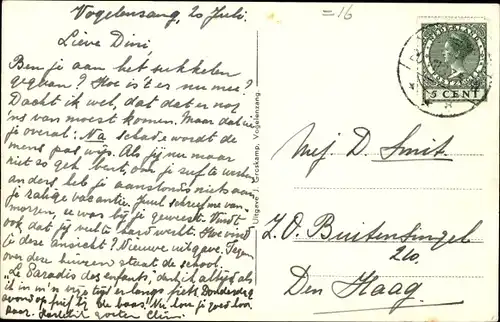 =16
Vogelenzang, 20 Juli.
Lieve Dini,
Ben je aan het sukkelen
gegaan? Hoe is 't er nu mee?
Dacht ik wel, dat dat er nog
'ns van moest komen. Maar dat zie
je overal: Na schade wordt de
mens pas wijs. Als jij nu maar
niet zo gek bent, om je suf te werken
anders heb je aanstonds niets aan
je zalige vacantie. Juul schreef me van-
morgen, ze was bij je geweest. Vindt
ook dat jij veel te hard werkt. Hoe vind
je deze ansicht? Nieuwe uitgave. Tegen
over deze huizen staat de school.
"Le Paradis des enfants", denk ik altijd als
ik in m'n vrije tijd er langs fiets. Donderdag
avond op
Hartelijk groeten
Uitgave J. Groskamp, Vogelenzang.
NEDERLAND
5 CENT
Mej. D. Smit.
Z.O. Buitensingel
210.
Den Haag.